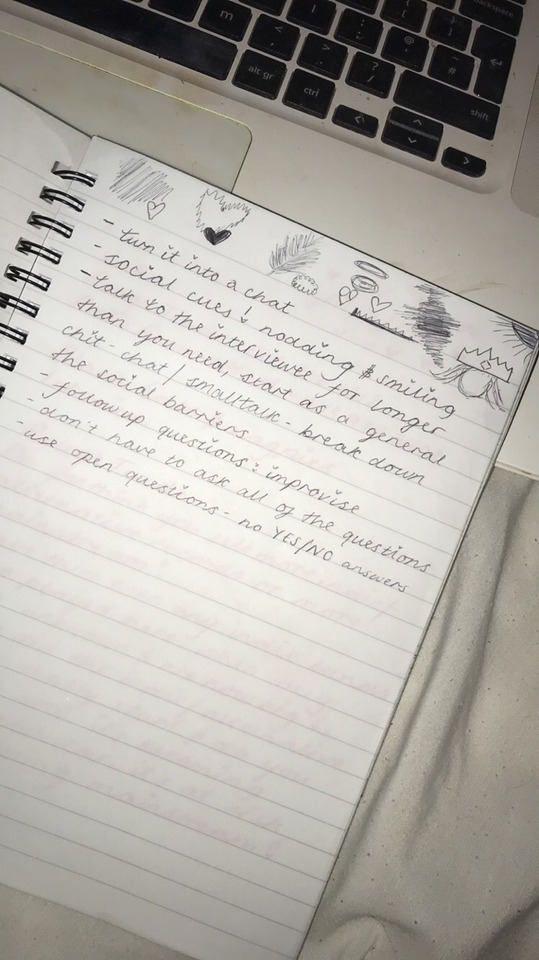 - turn it into a chat
- social cues! nodding & smiling
- talk to the interviewee for longer
than you need, start as a general
chit-chat/smalltalk - break down
the social barriers
- follow up questions: improvise
- don't have to ask all of the questions
- use open questions - no YES/NO answers
backspace
m
alt gr
ctrl
shift